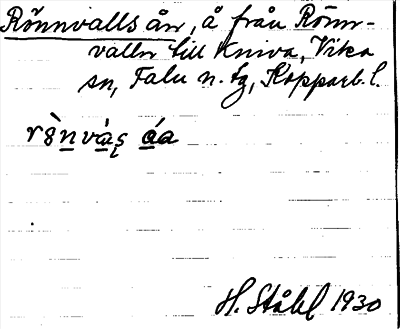 Rönnvalls ån, å från Rönn-
valln till Kniva, Vika
sn, Falu n. tg, Kopparb. l.
rö̀nvȧʂ áa
H. Ståhl 1930